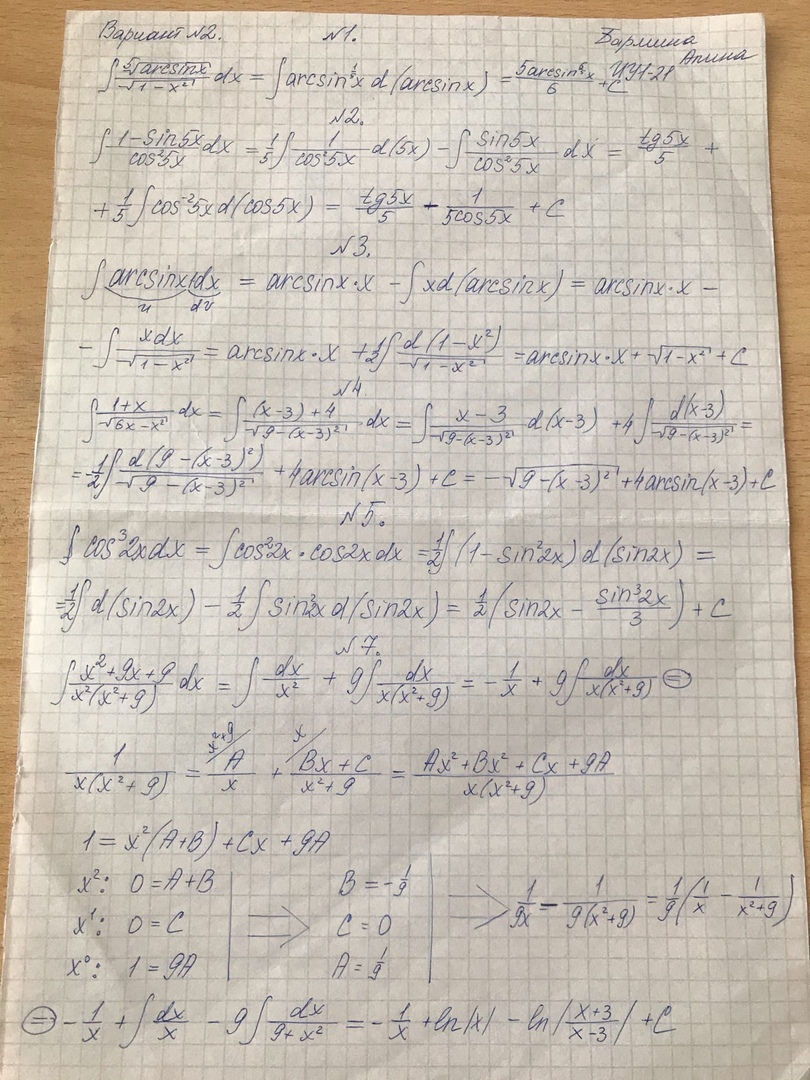 Вариант №2. №1. Бармина
Алина
∫ ⁵√arcsinx / √(1-x²) dx = ∫ arcsin^(1/5)x d(arcsinx) = 5arcsin^(6/5)x / 6 + C ИУ1-21
№2.
∫ (1-sin5x)/cos²5x dx = 1/5 ∫ 1/cos²5x d(5x) - ∫ sin5x/cos²5x dx = tg5x/5 +
+ 1/5 ∫ cos⁻²5x d(cos5x) = tg5x/5 - 1/(5cos5x) + C
№3.
∫ arcsinx·dx = arcsinx·x - ∫ xd(arcsinx) = arcsinx·x -
u dv
- ∫ xdx/√(1-x²) = arcsinx·x + 1/2 ∫ d(1-x²)/√(1-x²) = arcsinx·x + √(1-x²) + C
№4
∫ (1+x)/√(6x-x²) dx = ∫ ((x-3)+4)/√(9-(x-3)²) dx = ∫ (x-3)/√(9-(x-3)²) d(x-3) + 4∫ d(x-3)/√(9-(x-3)²) =
= -1/2 ∫ d(9-(x-3)²)/√(9-(x-3)²) + 4arcsin(x-3) + C = -√(9-(x-3)²) + 4arcsin(x-3) + C
№5.
∫ cos³2xdx = ∫ cos²2x·cos2xdx = 1/2 ∫ (1-sin²2x) d(sin2x) =
= 1/2 ∫ d(sin2x) - 1/2 ∫ sin²2x d(sin2x) = 1/2 (sin2x - sin³2x/3) + C
№7.
∫ (x²+9x+9)/(x²(x²+9)) dx = ∫ dx/x² + 9∫ dx/(x(x²+9)) = -1/x + 9∫ dx/(x(x²+9)) ⊜
x²+9 x
1/(x(x²+9)) = A/x + (Bx+C)/(x²+9) = (Ax²+Bx²+Cx+9A)/(x(x²+9))
1 = x²(A+B) + Cx + 9A
x²: 0=A+B B=-1/9
x¹: 0=C ⇒ C=0 ⇒ 1/9x - 1/(9(x²+9)) = 1/9 (1/x - 1/(x²+9))
x⁰: 1=9A A=1/9
⊜ -1/x + ∫ dx/x - 9∫ dx/(9+x²) = -1/x + ln|x| - ln|(x+3)/(x-3)| + C